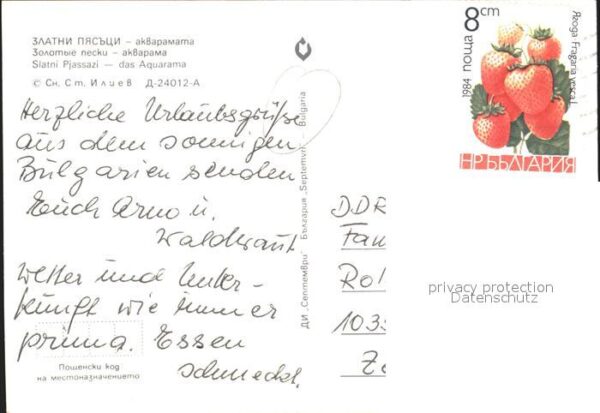 ЗЛАТНИ ПЯСЪЦИ - акварамата
Золотые пески - акварама
Slatni Pjassazi — das Aquarama
© Сн. Ст. Илиев Д-24012-А
Herzliche Urlaubsgrüße
aus dem sonnigen
Bulgarien senden
Euch Arno u.
Waldtraut
Wetter und Unter-
kunft wie immer
prima. Essen
schmeckt.
Пощенски код
на местоназначението
ДИ „Септември" България „Septemvri" Bulgaria
8 ст
1984 поща
Ягода Fragaria vesca L
НР БЪЛГАРИЯ
DDR
Fam
Rol
1035
privacy protection
Datenschutz